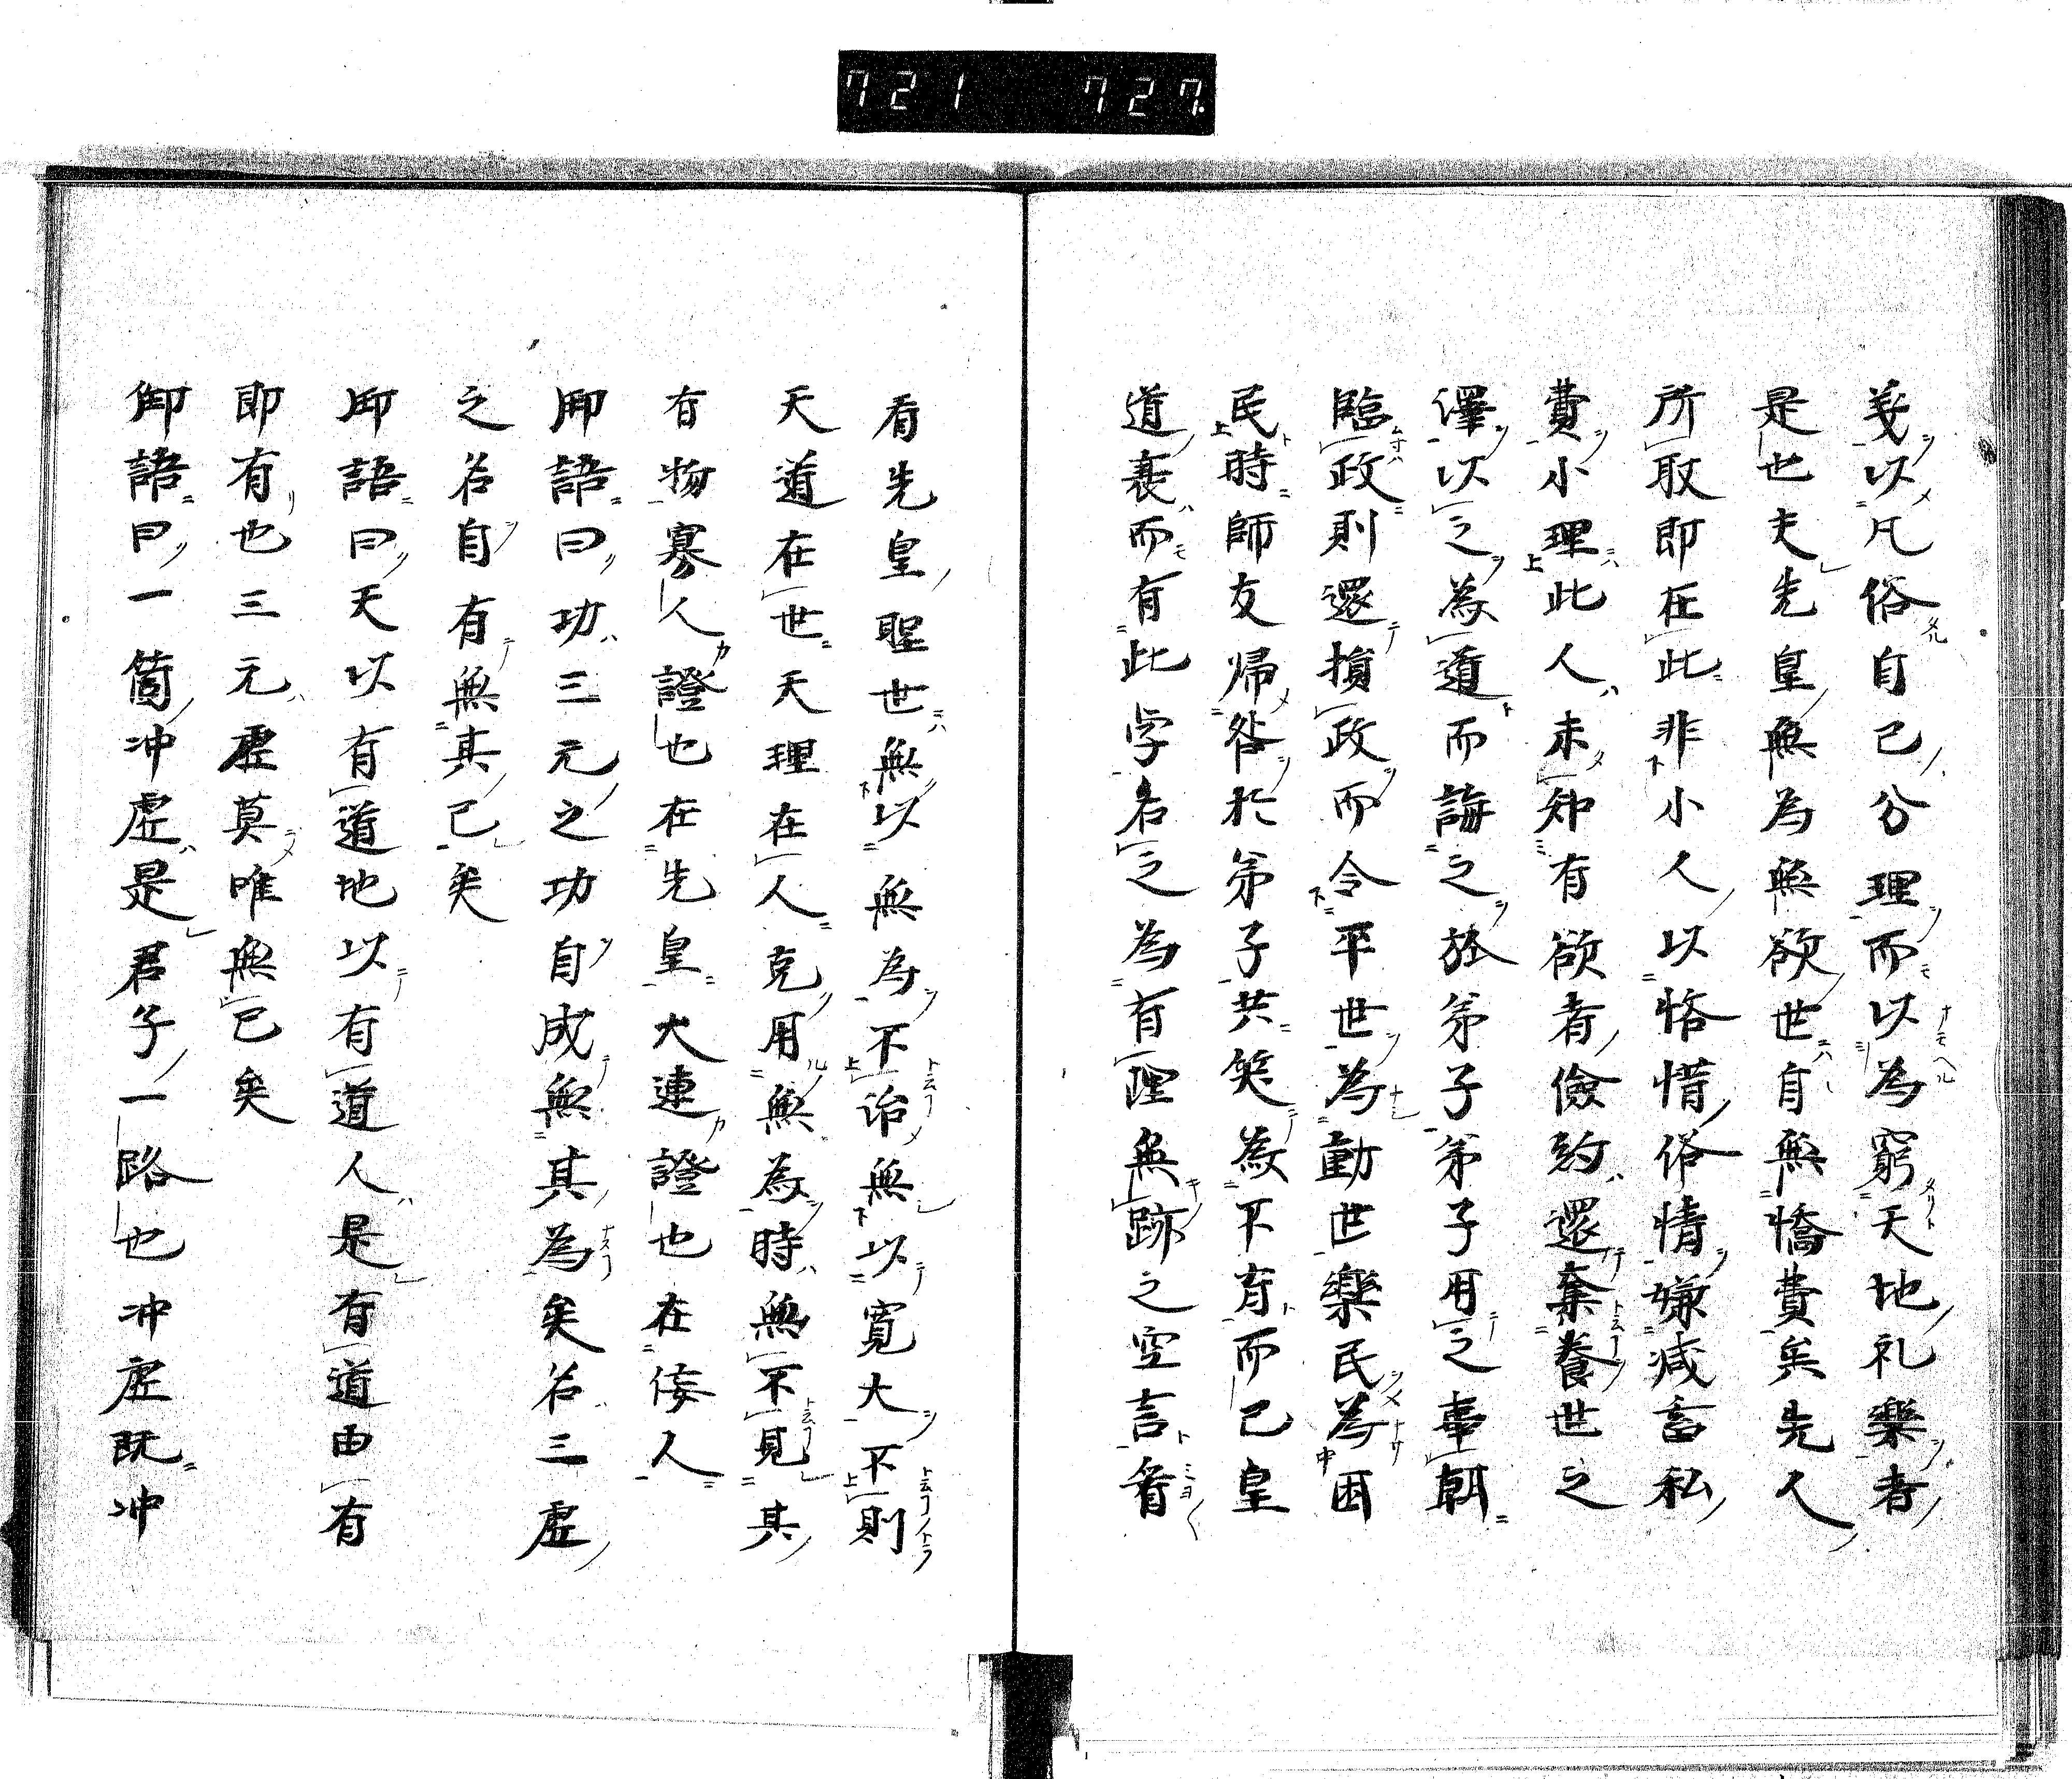 721 727
義以凡俗自己分理而以為窮天地礼樂者
是也夫先皇無為無欲世自無憍費矣先人
所取即在此非小人以悋惜俗情嫌減畜私
費小理此人未知有欲者儉約還棄養世之
澤以之為道而誨之於弟子弟子用之事朝
臨政則還損政而令平世為動世樂民為困
民時師友帰咎於弟子共笑為不肖而已皇
道衰而有此字名之為有理無跡之空言看
看先皇聖世無以無為不治無以寛大不則
天道在世天理在人克用無為時無不見其
有物寡人證也在先皇大連證也在倭人
御語曰功三元之功自成無其為矣名三虚
之名自有無其己矣
御語曰天以有道地以有道人是有道由有
即有也三元虚莫唯無已矣
御語曰一箇冲虚是君子一路也冲虚既冲